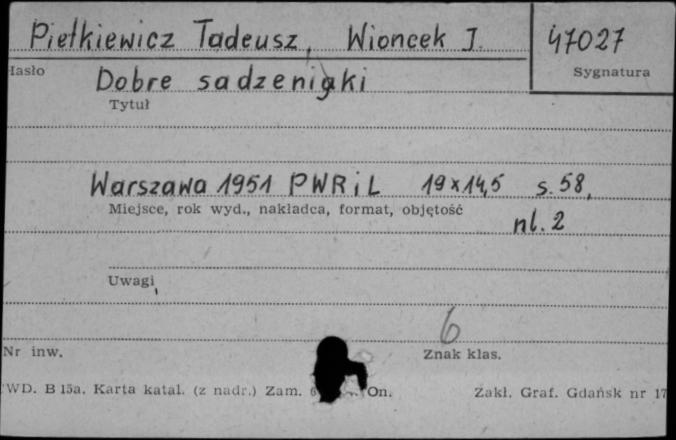 Piełkiewicz Tadeusz, Wioncek J. 47027
Hasło Sygnatura
Dobre sadzeniaki
Tytuł
Warszawa 1951 PWRiL 19x14,5 s. 58,
Miejsce, rok wyd., nakładca, format, objętość
nl. 2
Uwagi
6
Nr inw. Znak klas.
WD. B 15a. Karta katal. (z nadr.) Zam. On. Zakł. Graf. Gdańsk nr 17